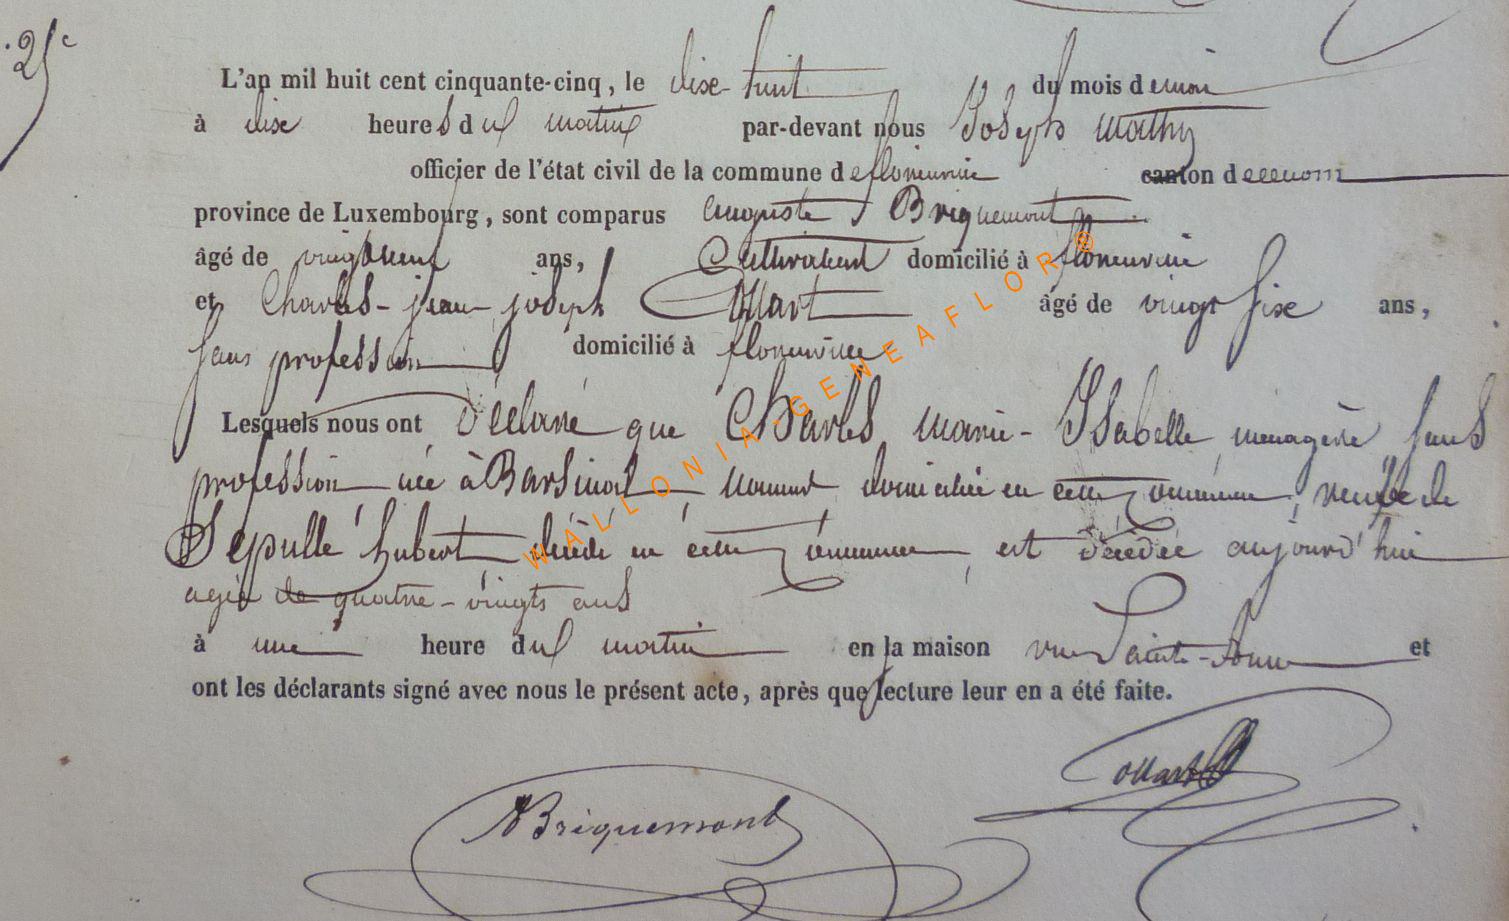 25e
L'an mil huit cent cinquante-cinq, le dixe-huit du mois de mai
à dixe heures du matin par-devant nous Joseph Mathy
officier de l'état civil de la commune de florenville canton d
province de Luxembourg, sont comparus auguste Briquemont
âgé de vingt neuf ans, Cultivateur domicilié à florenville
et Charles-jean-joseph Collart âgé de vingt sixe ans,
sans profession domicilié à florenville
Lesquels nous ont déclaré que Charles marie-Isabelle, menagère sans
profession née à domiciliée en cette commune, veuve de
Sepulle hubert, décédé en cette commune, est décédée aujourd'hui
agée de quatre-vingts ans
à une heure du matin en la maison rue Sainte-Anne et
ont les déclarants signé avec nous le présent acte, après que lecture leur en a été faite.
Collart
ABriquemont
WALLONIA-GENEAFLOR®